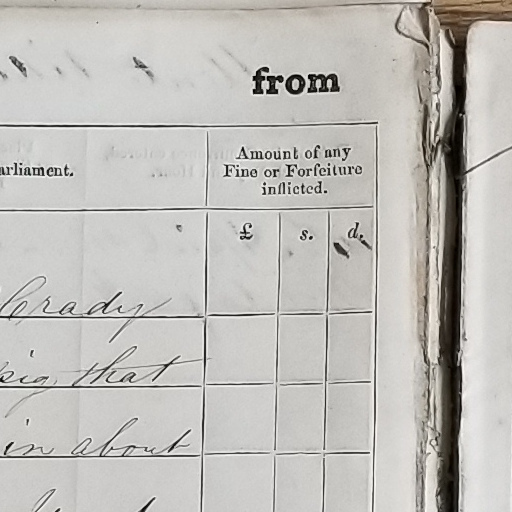 from
arliament.
Amount of any
Fine or Forfeiture
inflicted.
£ s. d.
Crady
pig that
in about